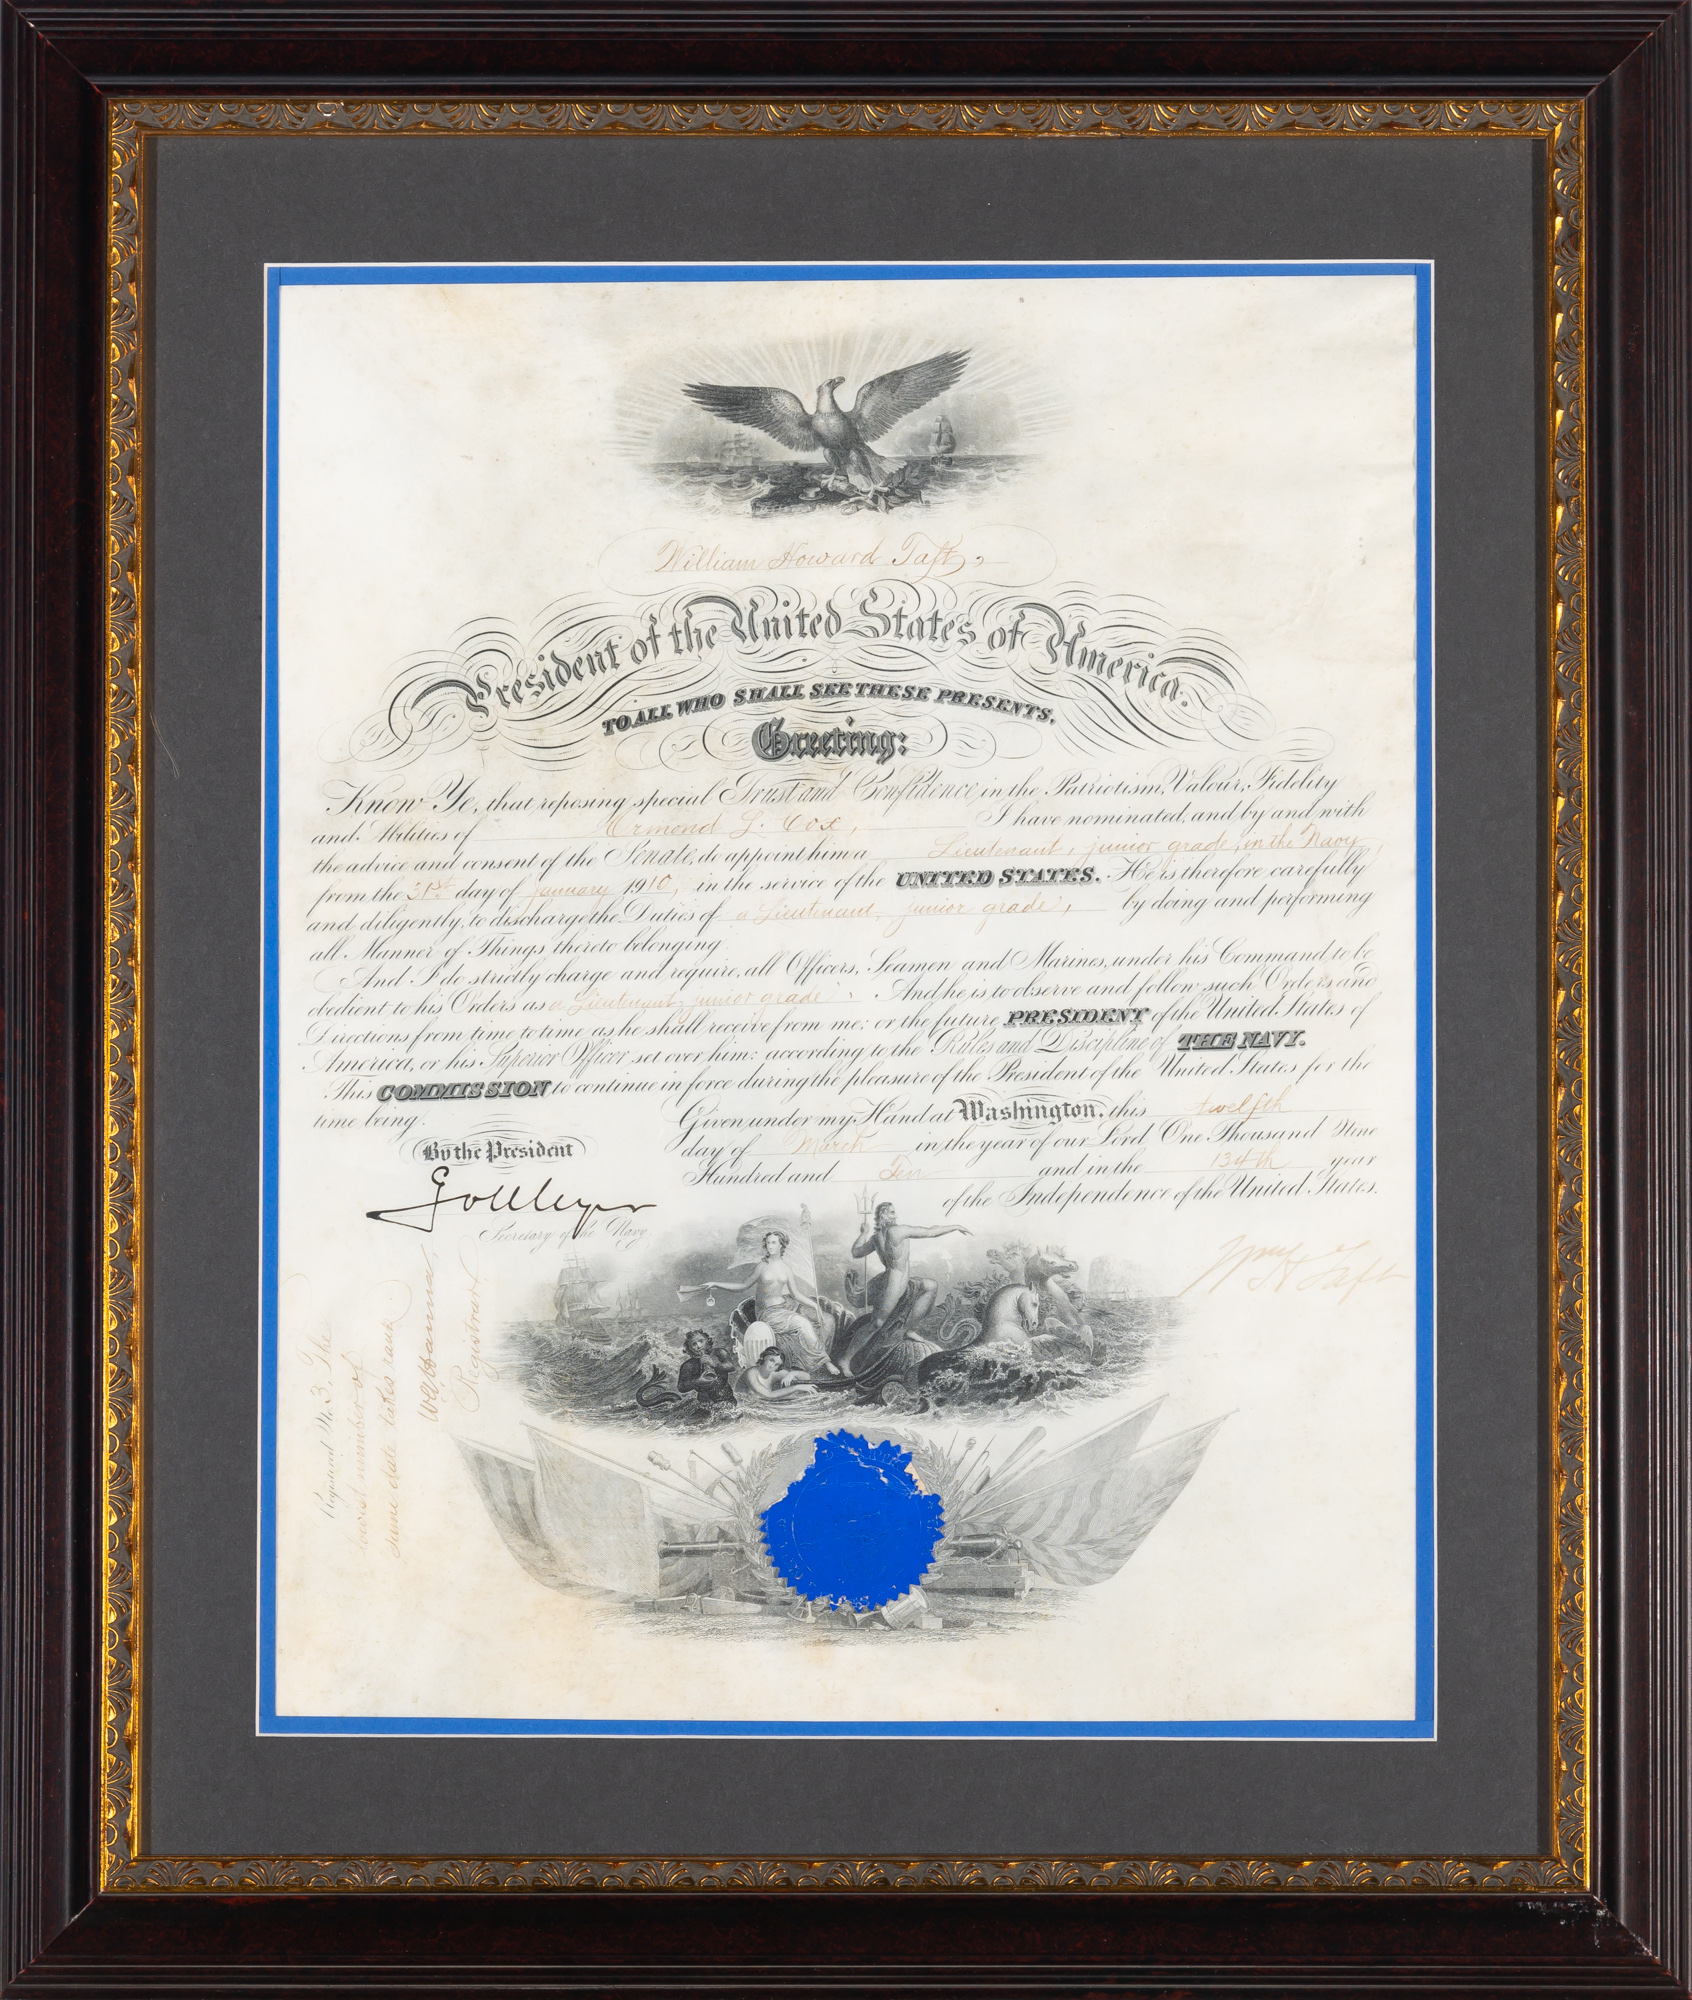 William Howard Taft,
President of the United States of America.
TO ALL WHO SHALL SEE THESE PRESENTS,
Greeting:
Know Ye, that reposing special Trust and Confidence in the Patriotism, Valour, Fidelity
and Abilities of Ormond L. Cox, I have nominated, and by and with
the advice and consent of the Senate, do appoint him a Lieutenant, junior grade, in the Navy,
from the 31st day of January 1910, in the service of the UNITED STATES. He is therefore carefully
and diligently to discharge the Duties of a Lieutenant, junior grade, by doing and performing
all Manner of Things thereto belonging.
And I do strictly charge and require all Officers, Seamen and Marines, under his Command to be
obedient to his Orders as a Lieutenant, junior grade. And he is to observe and follow such Orders and
Directions from time to time as he shall receive from me; or the future PRESIDENT of the United States of
America, or his Superior Officer set over him; according to the Rules and Discipline of THE NAVY.
This COMMISSION to continue in force during the pleasure of the President of the United States for the
time being.
Given under my Hand at Washington, this twelfth
day of March in the year of our Lord One Thousand Nine
Hundred and Ten and in the 134th year
of the Independence of the United States.
By the President
GvLMeyer
Secretary of the Navy.
Wm H Taft
Registered No 3. The
lowest number of
same date takes rank.
Registrar.